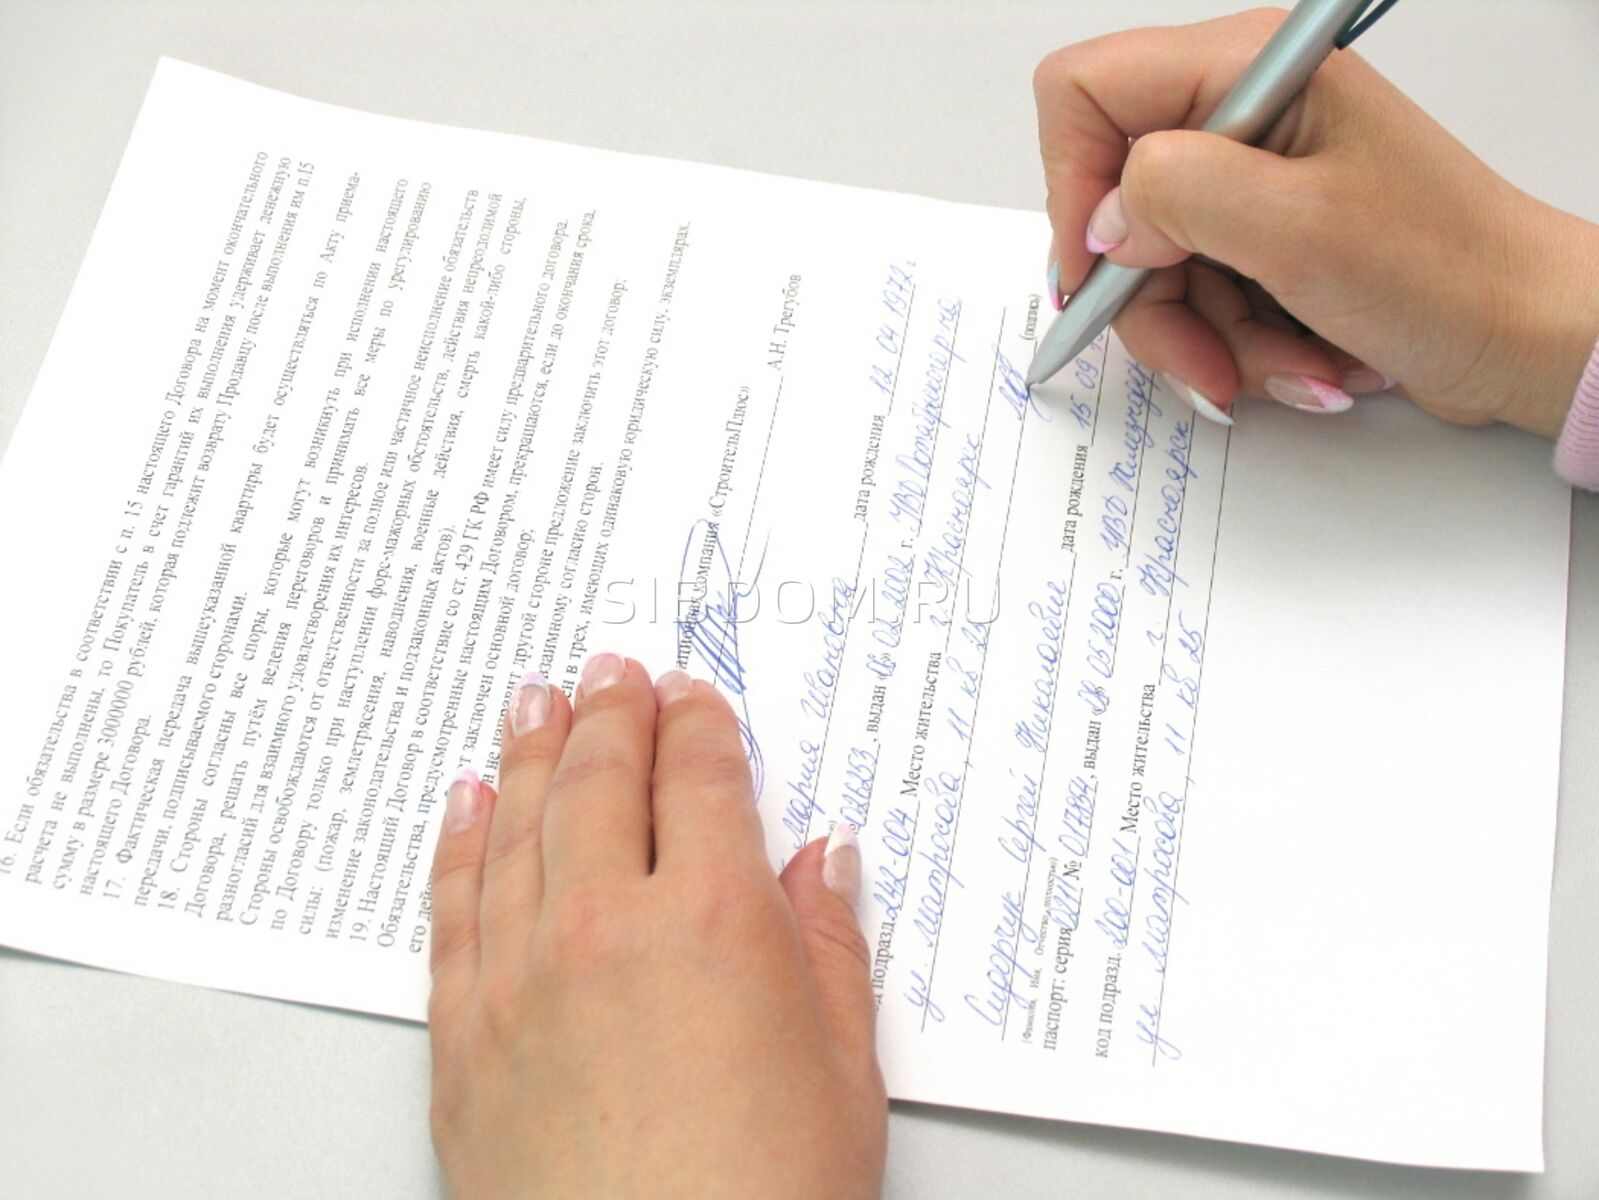 16. Если обязательства в соответствии с п. 15 настоящего Договора на момент окончательного
расчета не выполнены, то Покупатель в счет гарантий их выполнения удерживает денежную
сумму в размере 3000000 рублей, которая подлежит возврату Продавцу после выполнения им п.15
настоящего Договора.
17. Фактическая передача вышеуказанной квартиры будет осуществляться по Акту приема-
передачи, подписываемого сторонами.
18. Стороны согласны все споры, которые могут возникнуть при исполнении настоящего
Договора, решать путём ведения переговоров и принимать все меры по урегулированию
разногласий для взаимного удовлетворения их интересов.
Стороны освобождаются от ответственности за полное или частичное неисполнение обязательств
по Договору только при наступлении форс-мажорных обстоятельств, действия непреодолимой
силы: (пожар, землетрясения, наводнения, военные действия, смерть какой-либо стороны,
изменение законодательства и подзаконных актов).
19. Настоящий Договор в соответствие со ст. 429 ГК РФ имеет силу предварительного договора.
Обязательства, предусмотренные настоящим Договором, прекращаются, если до окончания срока,
его заключен основной договор;
не направит другой стороне предложение заключить этот договор;
взаимному согласию сторон.
в трех, имеющих одинаковую юридическую силу, экземплярах.
компания «СтроительПлюс» А.Н. Трегубов
Мария Ивановна дата рождения 12 04 1972 г
026253, выдан 02 2002 г. УВД
подразд. 242-004 Место жительства г Красноярск
ул. Матросова, 11 кв 25
(подпись)
Сидорчук Сергей Николаевич дата рождения 15 09
(Фамилия, Имя, Отчество полностью)
паспорт: серия 0211 № 017884, выдан «28» 05 2000 г. УВД
код подразд. 200-001 Место жительства г. Красноярск
ул. Матросова, 11 кв 25
SIBDOM.RU